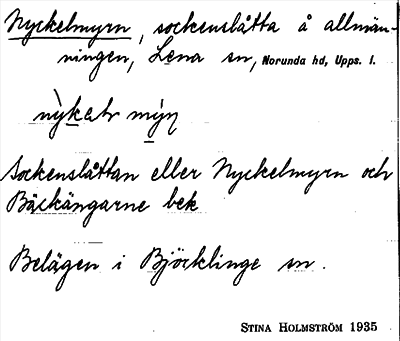 Nyckelmyrn, sockenslåtta å allmän-
ningen, Lena sn, Norunda hd, Upps. l.
sockenslåttan eller Nyckelmyrn och
Bäckängarne bek
Belägen i Björklinge sn.
STINA HOLMSTRÖM 1935